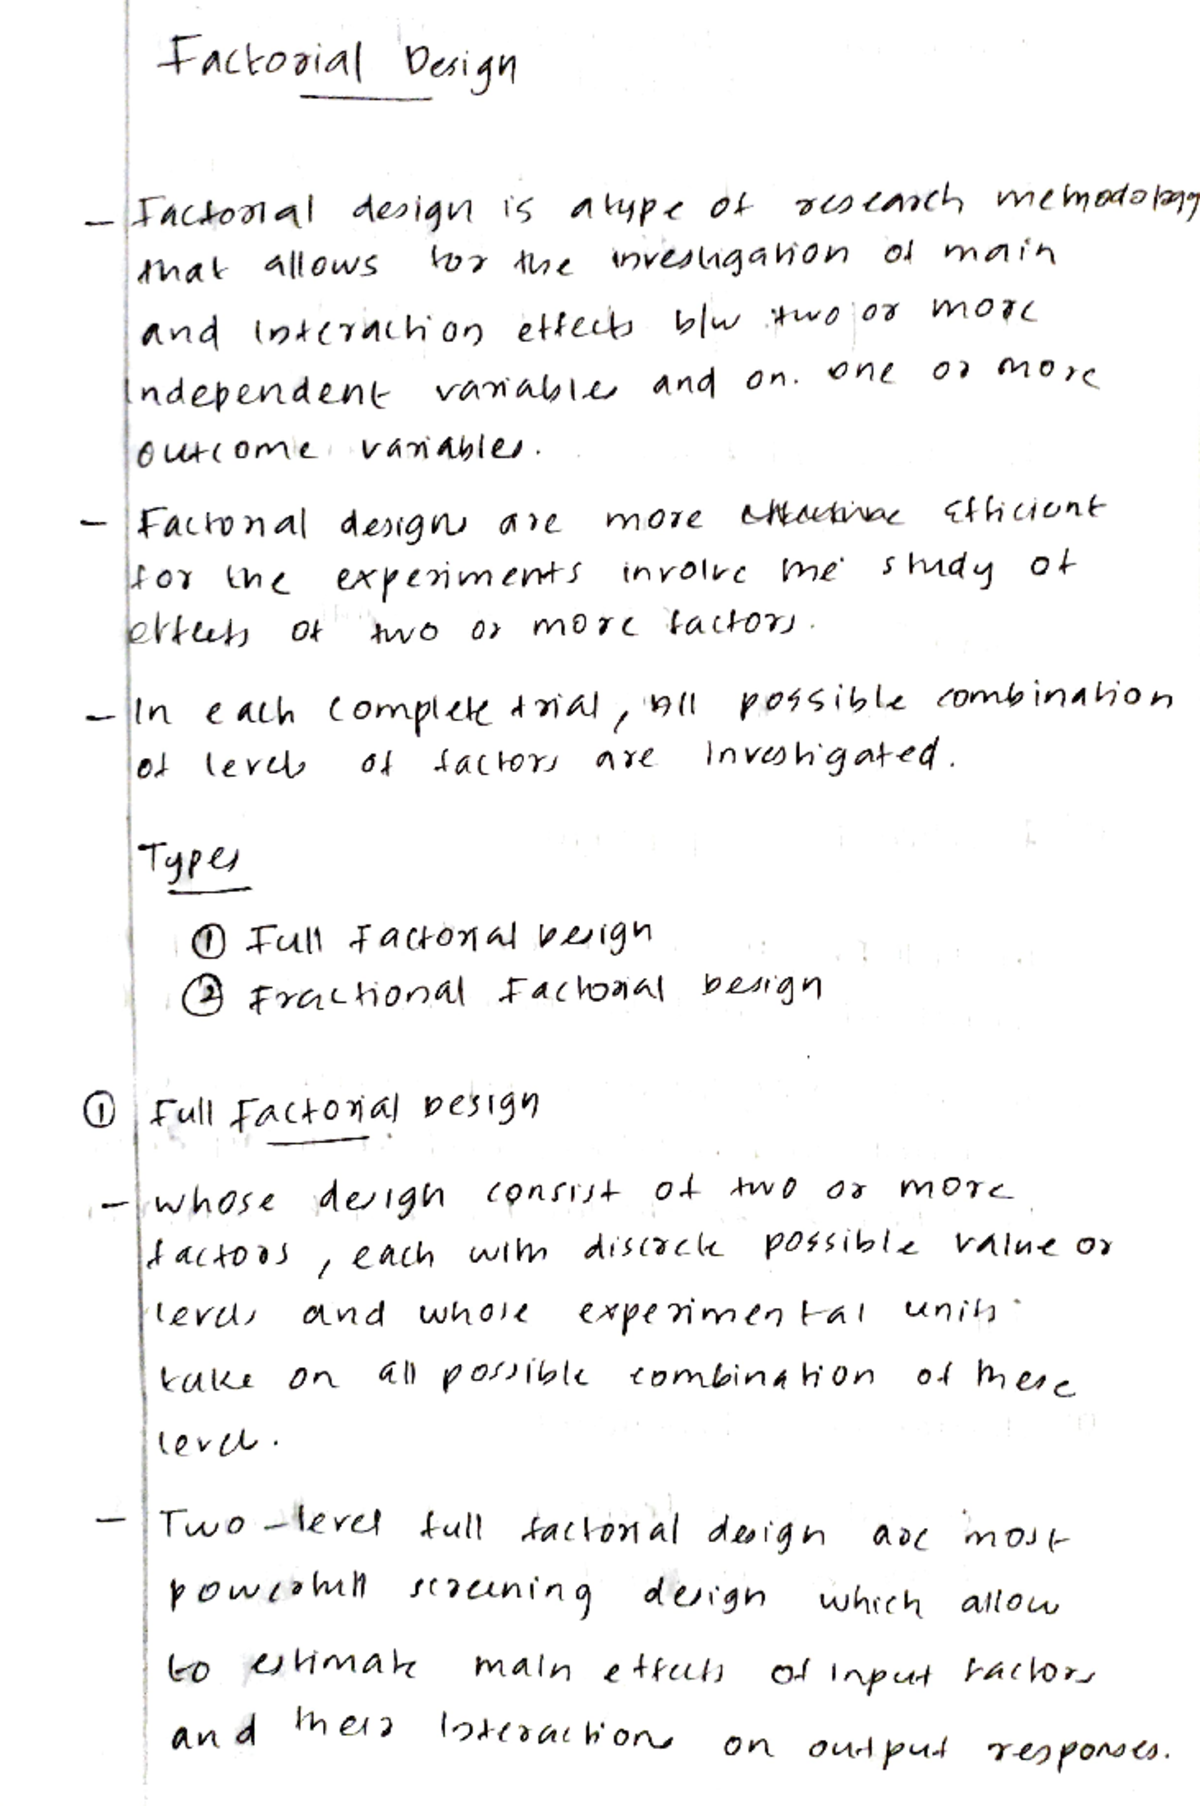 Factorial Design
- Factorial design is a type of research methodology
that allows for the investigation of main
and interaction effects b/w two or more
Independent variables and on. one or more
outcome variables.
- Factorial designs are more effective Efficient
for the experiments involve the study of
effects of two or more factors.
- In each complete trial, All possible combination
of levels of factors are investigated.
Types
① Full Factorial Design
② Fractional Factorial Design
① Full Factorial Design
- whose design consist of two or more
factors, each with discrete possible value or
levels and whose experimental units
take on all possible combination of these
level.
- Two-level full factorial design are most
powerfull screening design which allow
to estimate main effects of input factors
and their Interactions on output responses.